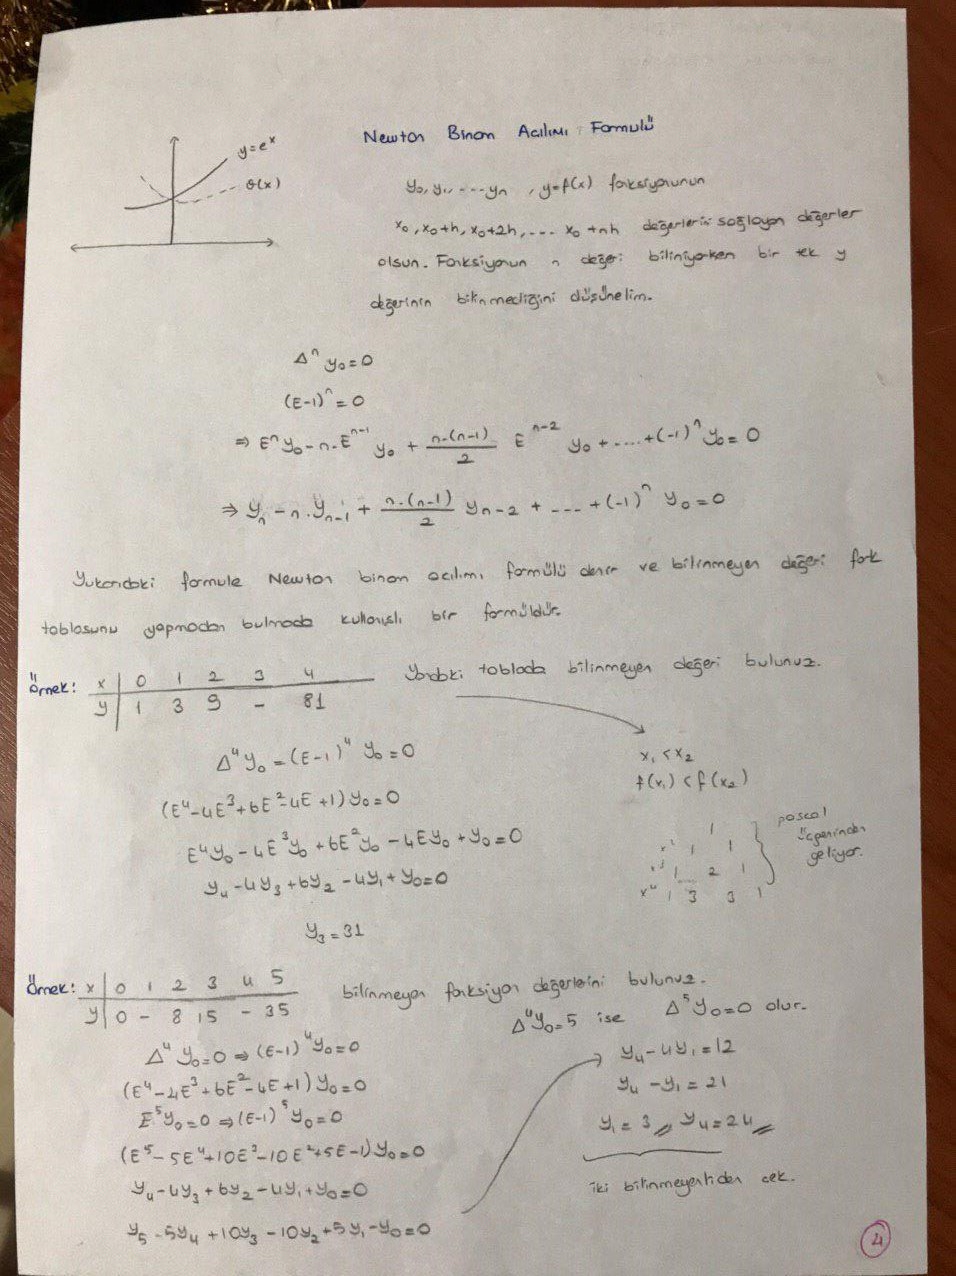 Newton Binom Acılımı Formülü
y=eˣ
θ(x)
y₀, y₁, ---- yₙ , y=f(x) fonksiyonunun
x₀, x₀+h, x₀+2h, .... x₀+nh değerlerini sağlayan değerler
olsun. Fonksiyonun n değeri biliniyorken bir tek y
değerinin bilinmediğini düşünelim.
Δⁿ y₀=0
(E-1)ⁿ=0
⇒ Eⁿy₀ - n.Eⁿ⁻¹ y₀ + n.(n-1)/2 Eⁿ⁻² y₀ + .... + (-1)ⁿ y₀ = 0
⇒ yₙ - n.yₙ₋₁ + n.(n-1)/2 yₙ₋₂ + .... + (-1)ⁿ y₀ = 0
Yukarıdaki formüle Newton binom acılımı formülü denir ve bilinmeyen değeri fark
tablosunu yapmadan bulmada kullanışlı bir formüldür.
Örnek: x | 0 1 2 3 4 Yandaki tabloda bilinmeyen değeri bulunuz.
y | 1 3 9 - 81
x₁ < x₂
f(x₁) < f(x₂)
Δ⁴y₀ = (E-1)⁴ y₀ = 0
(E⁴-4E³+6E²-4E+1)y₀=0
E⁴y₀ - 4E³y₀ + 6E²y₀ - 4Ey₀ + y₀ = 0
y₄-4y₃+6y₂-4y₁+y₀=0
y₃=31
1
1 1
1 2 1
1 3 3 1
pascal
üçgeninden
geliyor.
Örnek: x | 0 1 2 3 4 5 bilinmeyen fonksiyon değerlerini bulunuz.
y | 0 - 8 15 - 35
Δ⁴y₀=5 ise Δ⁵y₀=0 olur.
Δ⁴ y₀=0 ⇒ (E-1)⁴y₀=0
(E⁴-4E³+6E²-4E+1)y₀=0
E⁵y₀=0 ⇒ (E-1)⁵y₀=0
(E⁵-5E⁴+10E³-10E²+5E-1)y₀=0
y₄-4y₃+6y₂-4y₁+y₀=0
y₅-5y₄+10y₃-10y₂+5y₁-y₀=0
y₄-4y₁=12
y₄-y₁=21
y₁=3, y₄=24
iki bilinmeyenliden cek.
4